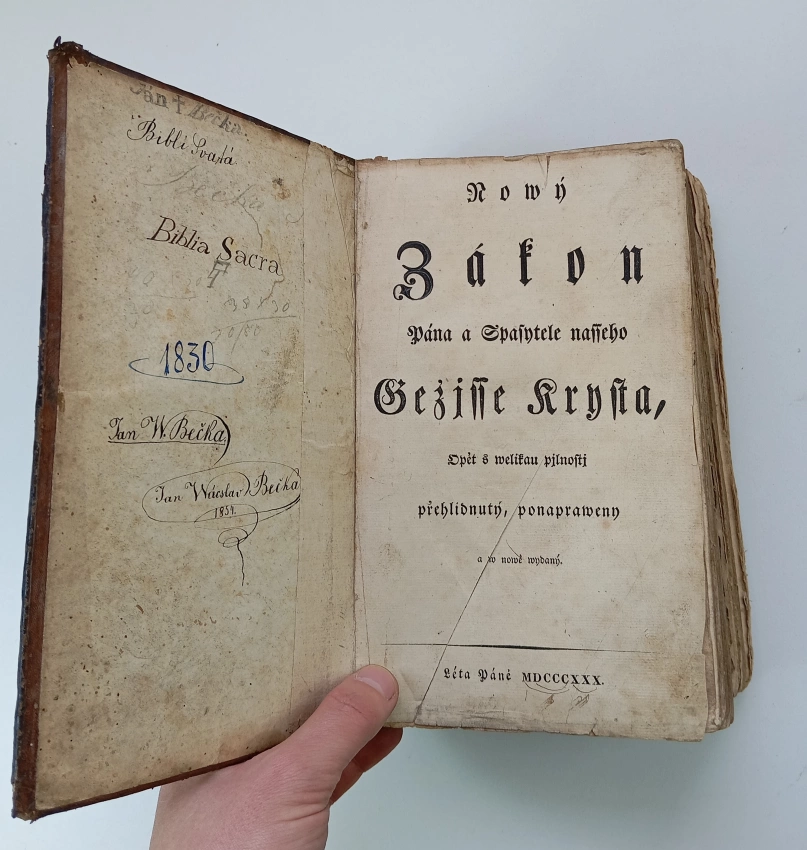 Jan † Bečka.
Bibli Svatá
Bečka
Biblia Sacra
1830
Jan W. Bečka.
Jan Wácslav Bečka
1854.
Nowý
Zákon
Pána a Spasytele nasseho
Gežjsse Krysta,
Opět s welikau pjlnostj
přehlidnutý, ponaprawený
a w nowě wydaný.
Léta Páně MDCCCXXX.